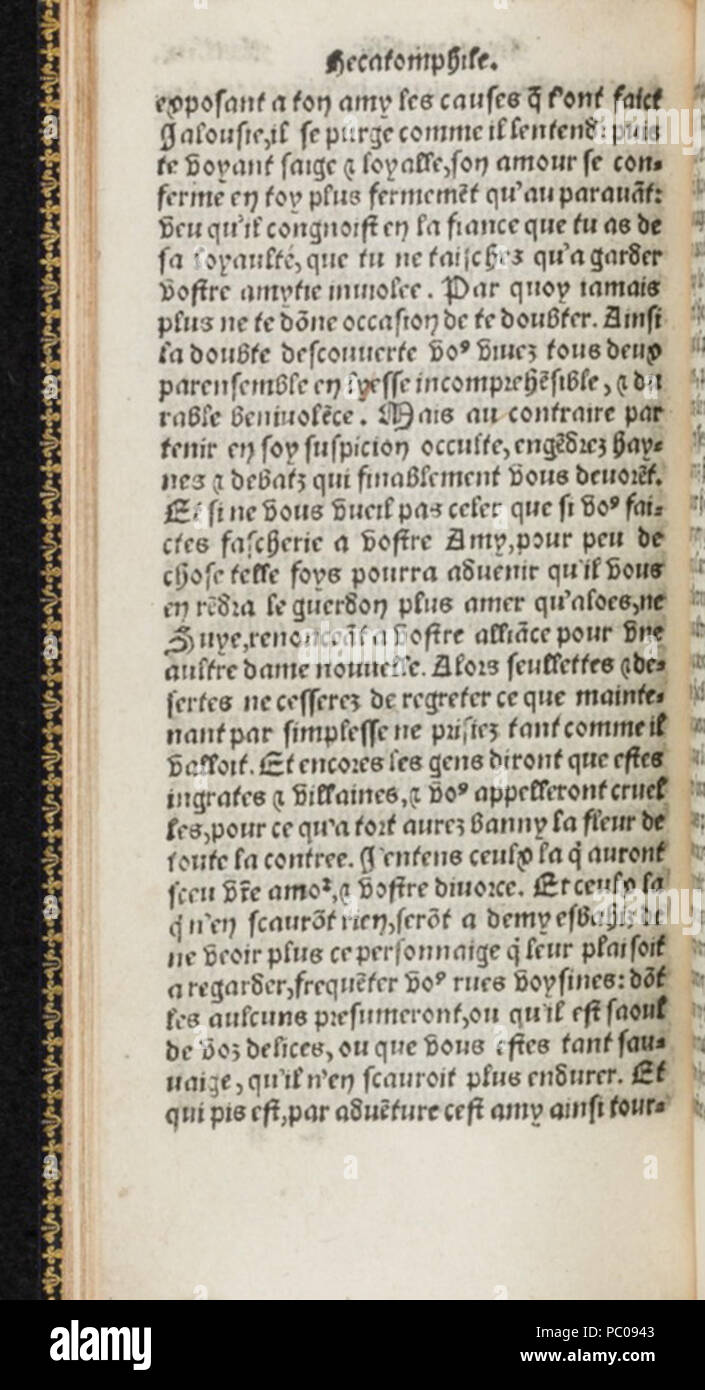 Hecatomphile.
exposant a ton amy les causes q̃ t'ont faict
Jalousie,il se purge comme il lentend: puis
te voyant saige ⁊ loyalle,son amour se con-
ferme en toy plus fermemẽt qu'au parauãt:
veu qu'il congnoist en la fiance que tu as de
sa loyaulté,que tu ne taisches qu'a garder
vostre amytie inuiolee. Par quoy iamais
plus ne te dõne occasion de te doubter. Ainsi
la doubte descouuerte vo⁹ viuez tous deux
parensemble en lyesse incomprehẽsible, ⁊ du
rable beniuolẽce. Mais au contraire par
tenir en soy suspicion occulte, engẽdrez hay-
nes ⁊ debatz qui finablement vous deuorẽt.
Et si ne vous vueil pas celer que si vo⁹ fai-
ctes fascherie a vostre Amy,pour peu de
chose telle foys pourra aduenir qu'il vous
en rẽdra le guerdon plus amer qu'aloes,ne
Suye,renonceãt a vostre alliãce pour vne
aultre dame nouuelle. Alors seullettes ⁊ de-
sertes ne cesserez de regreter ce que mainte-
nant par simplesse ne prisiez tant comme il
valloit. Et encores les gens diront que estes
ingrates ⁊ villaines,⁊ vo⁹ appelleront cruel
les,pour ce qu'a tort aurez banny la fleur de
toute la contree. J'entens ceulx la q̃ auront
sceu vr̃e amoꝛ,⁊ vostre diuorce. Et ceulx la
q̃ n'en scaurõt rien,serõt a demy esbahiz de
ne veoir plus ce personnaige q̃ leur plaisoit
a regarder,frequẽter vo⁹ rues voysines: dõt
les aulcuns presumeront,ou qu'il est saoul
de voz delices, ou que vous estes tant sau-
uaige, qu'il n'en scauroit plus endurer. Et
qui pis est,par aduẽture cest amy ainsi tour-
alamy
PC0943
www.alamy.com